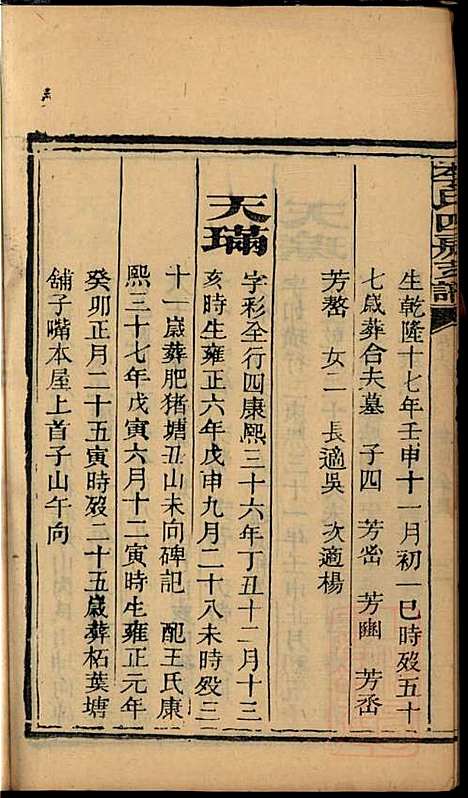 生乾隆十七年壬申十一月初一巳時歿五十
七歲葬合夫墓 子四 芳峦 芳幽 芳岙
芳嶅 女二 長適吳 次適楊
天璊
字彩全行四康熙三十六年丁丑十二月十三
亥時生雍正六年戊申九月二十八未時歿三
十一歲葬肥猪塘丑山未向碑記 配王氏康
熙三十七年戊寅六月十二寅時生雍正元年
癸卯正月二十五寅時歿二十五歲葬柘葉塘
舖子嘴本屋上首子山午向